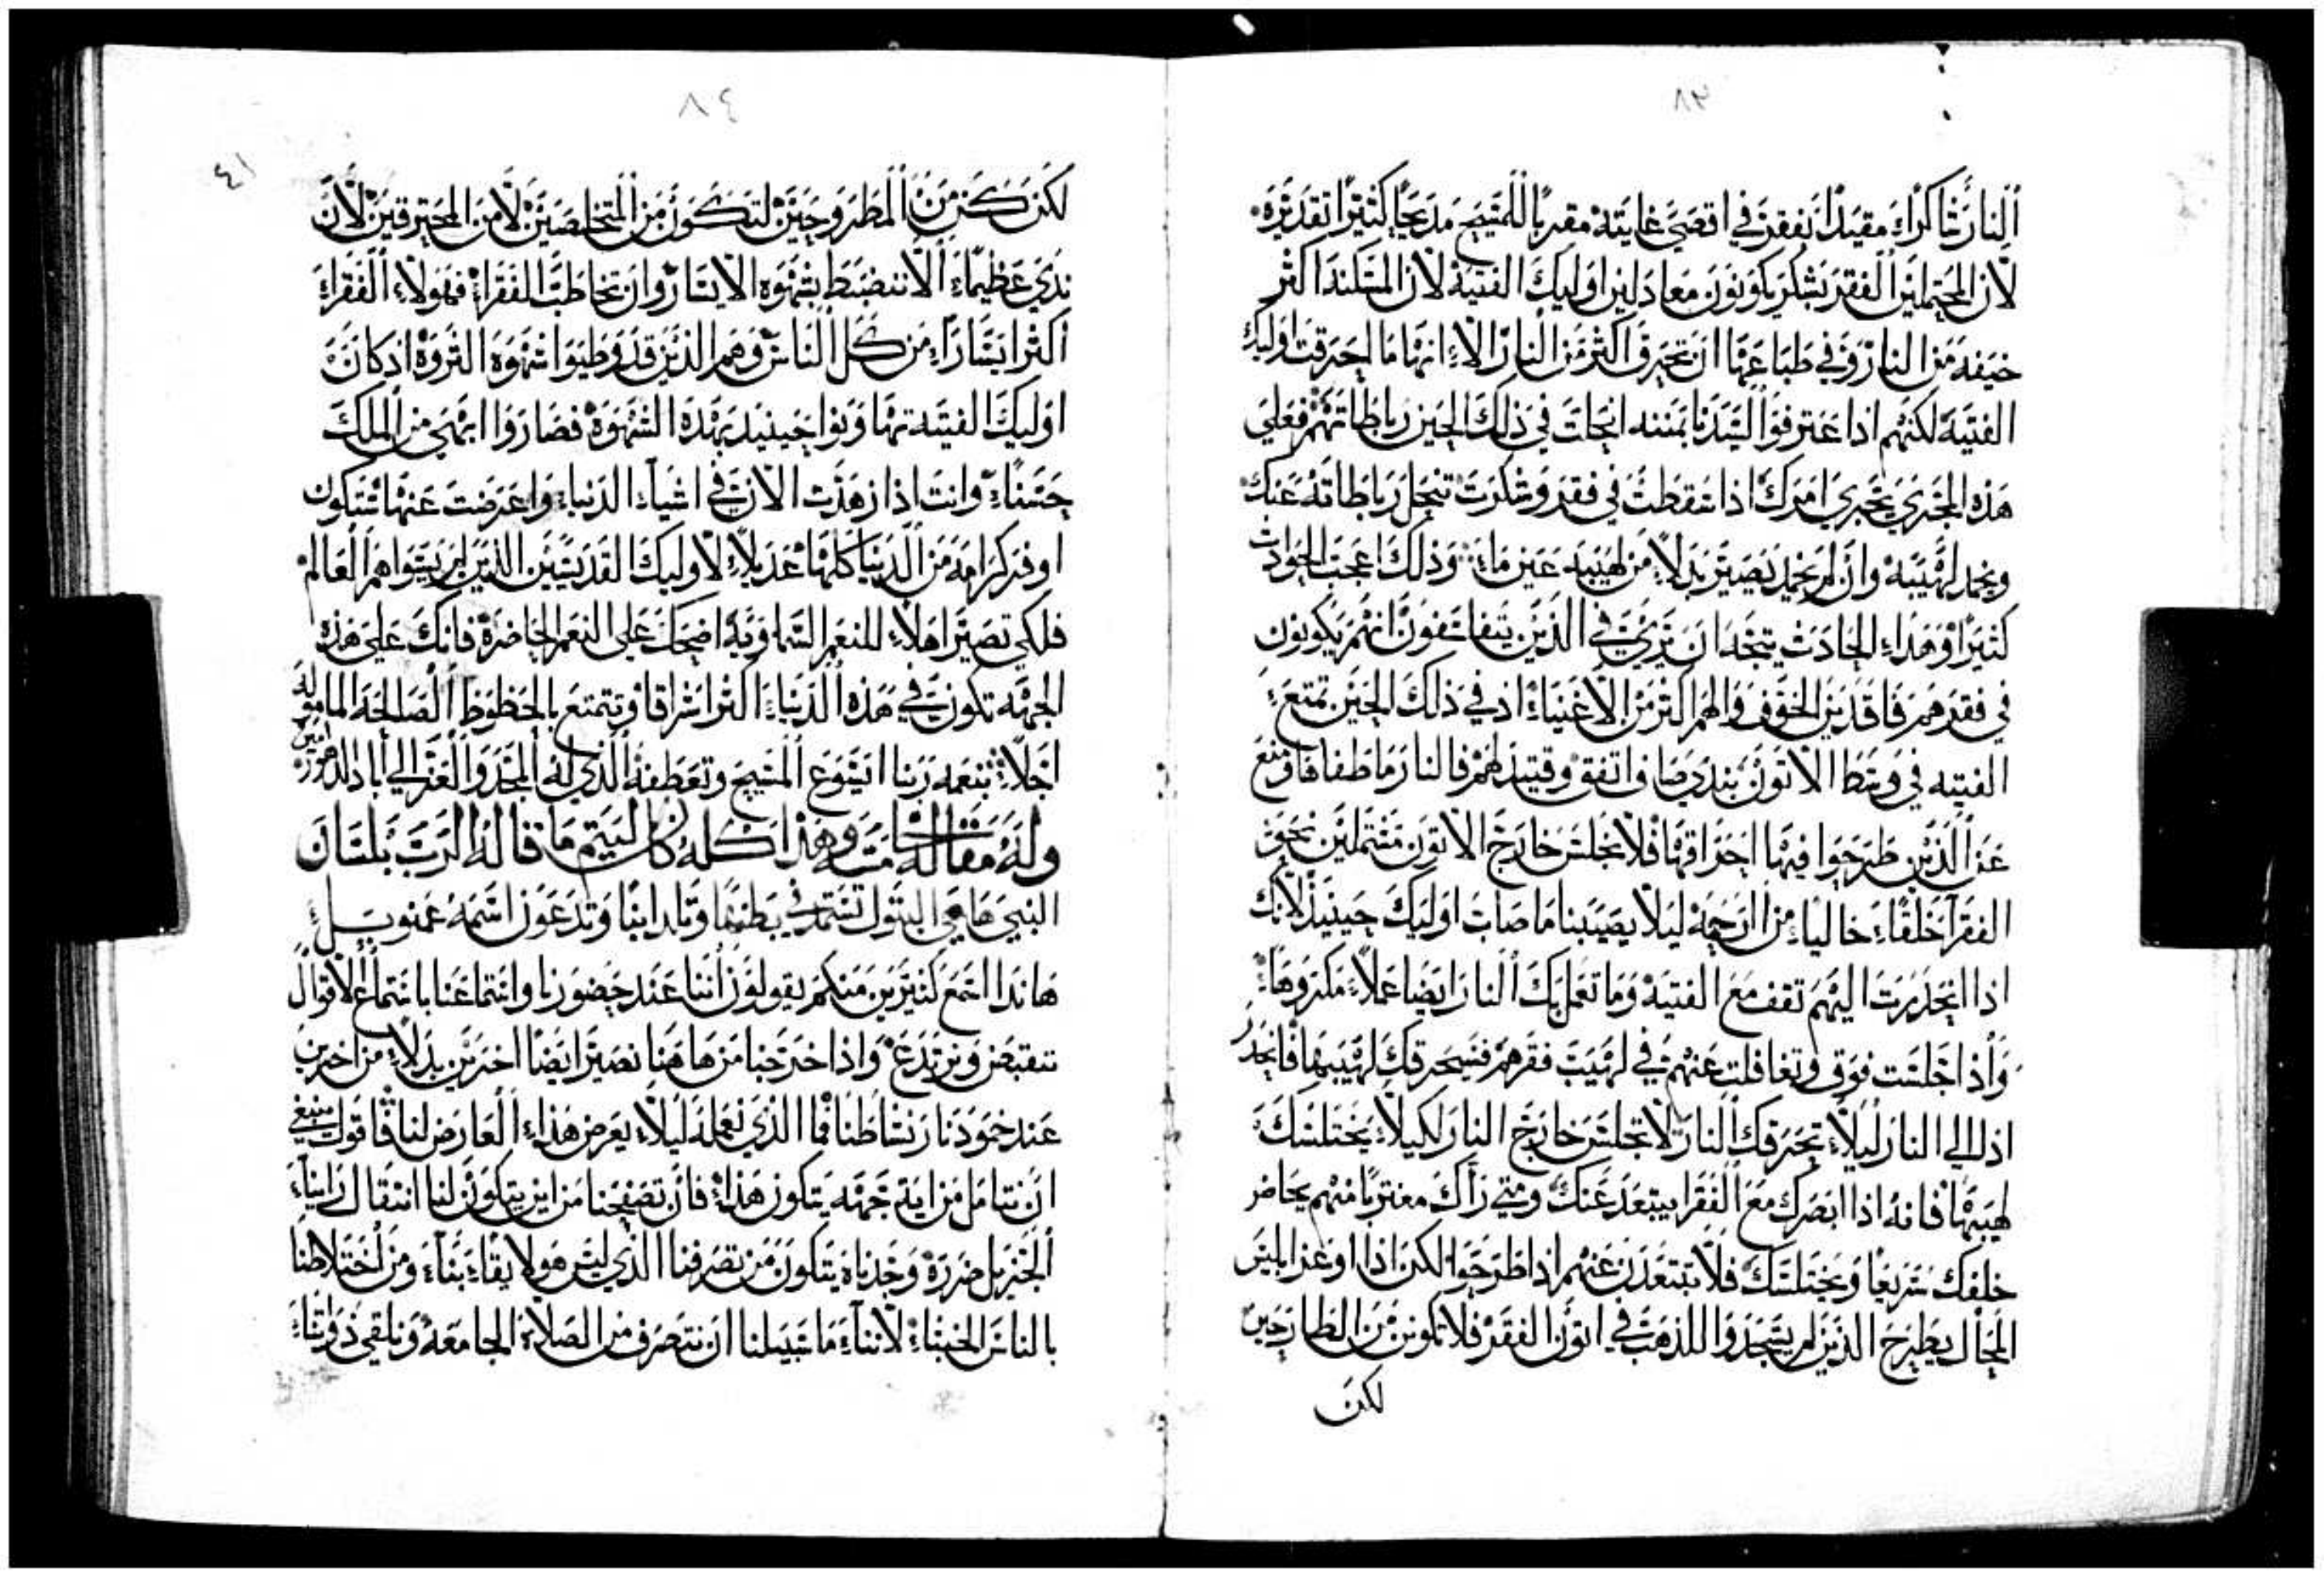 ٨٣
النار شاكراك مقيدا بفقر في اقصي غايته مقربا للمسيح مديحا كثيرا تقديره
لان المحتملين الفقر بشكر يكونون معادلين اوليك الفتية لان المسكنه اكثر
خيفه من النار وفي طباعها ان تحرق اكثر من النار الا انها ما احرقت اوليك
الفتية لكنهم اذ اعترفوا لسيدنا بمننه انحلت في ذلك الحين رباطاتهم فعلي
هذه المجري يجري امرك اذا سقطت في فقر وشكرت تنحل رباطاته عنك
ويخمد لهيبه وان لم يخمد يصير بدلا من لهيبه عين ماء وذلك اعجب الحوادث
كثيرا وهذاء الحادث يتجه ان يري في الذين يتفلسفون انهم يكونون
في فقرهم فاقدين الخوف والهم اكثر من الاغنياء اذ في ذلك الحين تمتع
الفتيه في وسط الاتون بندي صاف اتفق وقتيد لهم فالنار ما طفا فا ومنع
عن الذين طرحوا فيها احراقها فلا نجلس خارج الاتون مشتملين نحو
الفقرا خلقاء خالياء من الرحمه ليلا يصيبنا ما صاب اوليك حينيذ لانك
اذا انحدرت اليهم تقف مع الفتيه وما تعمل بك النار ايضا عملا مكروها
واذا جلست فوق وتغافلت عنهم في لهيب فقرهم فسيحرقك لهيبها فانحدر
اذا الي النار ليلا تحرقك النار لا تجلس خارج النار لكيلا يختلسك
لهيبها فانه اذا ابصرك مع الفقرا يبتعد عنك ومتي راك مغتربا منهم يحاضر
خلفك سريعا ويختلسك فلا تبتعدن عنهم اذا طرحوا لكن اذا اوعز ابليس
المحال بطرح الذين لم يسجدوا للذهب في اتون الفقر فلا تكونن من الطارحين
لكن
٨٤
٤١
لكن كن من المطروحين لتكون من المتخلصين لا من المحترقين لان
ندي عظيما الا تنضبط بشهوه الايسار وان تخاطب الفقراء فهولاء الفقراء
اكثر ايسارا من كل الناس وهم الذين قد وطيوا شهوه الثروة اذ كان
اوليك الفتيه تهاونوا حينيذ بهذه الشهوة فصاروا ابهي من الملك
حسنا وانت اذا زهدت الان في اشياء الدنيا واعرضت عنها ستكون
اوفر كرامه من الدنيا كلها عديلا لاوليك القديسين الذين لم يسواهم العالم
فلكي تصير اهلا للنعم السماويه اضحك علي النعم الحاضرة فانك علي هذه
الجهه تكون في هذه الدنيا اكثر اشراقا وتتمتع بالحظوظ الصالحة المامولة
اجلا بنعمه ربنا ايسوع المسيح وتعطفه الذي له المجد والعز الي اباد الدهور امين
وله مقالة خامسه وهذا كله كان ليتم ما قاله الرب بلسان
النبي ها هي البتول تستمد في بطنها وتلد ابنا وتدعون اسمه عمنوييل
هاندا اسمع كثيرين منكم يقولون اننا عند حضورنا واستماعنا باستماع الاقوال
ننقبض ونرتدع واذا خرجنا من هاهنا نصير ايضا اخرين بدلا من اخرين
عند خمود نار نشاطنا فما الذي نعمله ليلا يعرض هذاء العارض لنا فاقول ينبغي
ان نتامل من اية جهه يتكون هذا فان تصفحنا من اين يتكون لنا انتقال راينا
الجزيل ضررة وجدناه يتكون من تصرفنا الذي ليس هو لايقا بنا ومن اختلاطنا
بالناس الخبثاء لاننا ما سبيلنا ان نتصرف من الصلاة الجامعة ونلقي ذواتنا